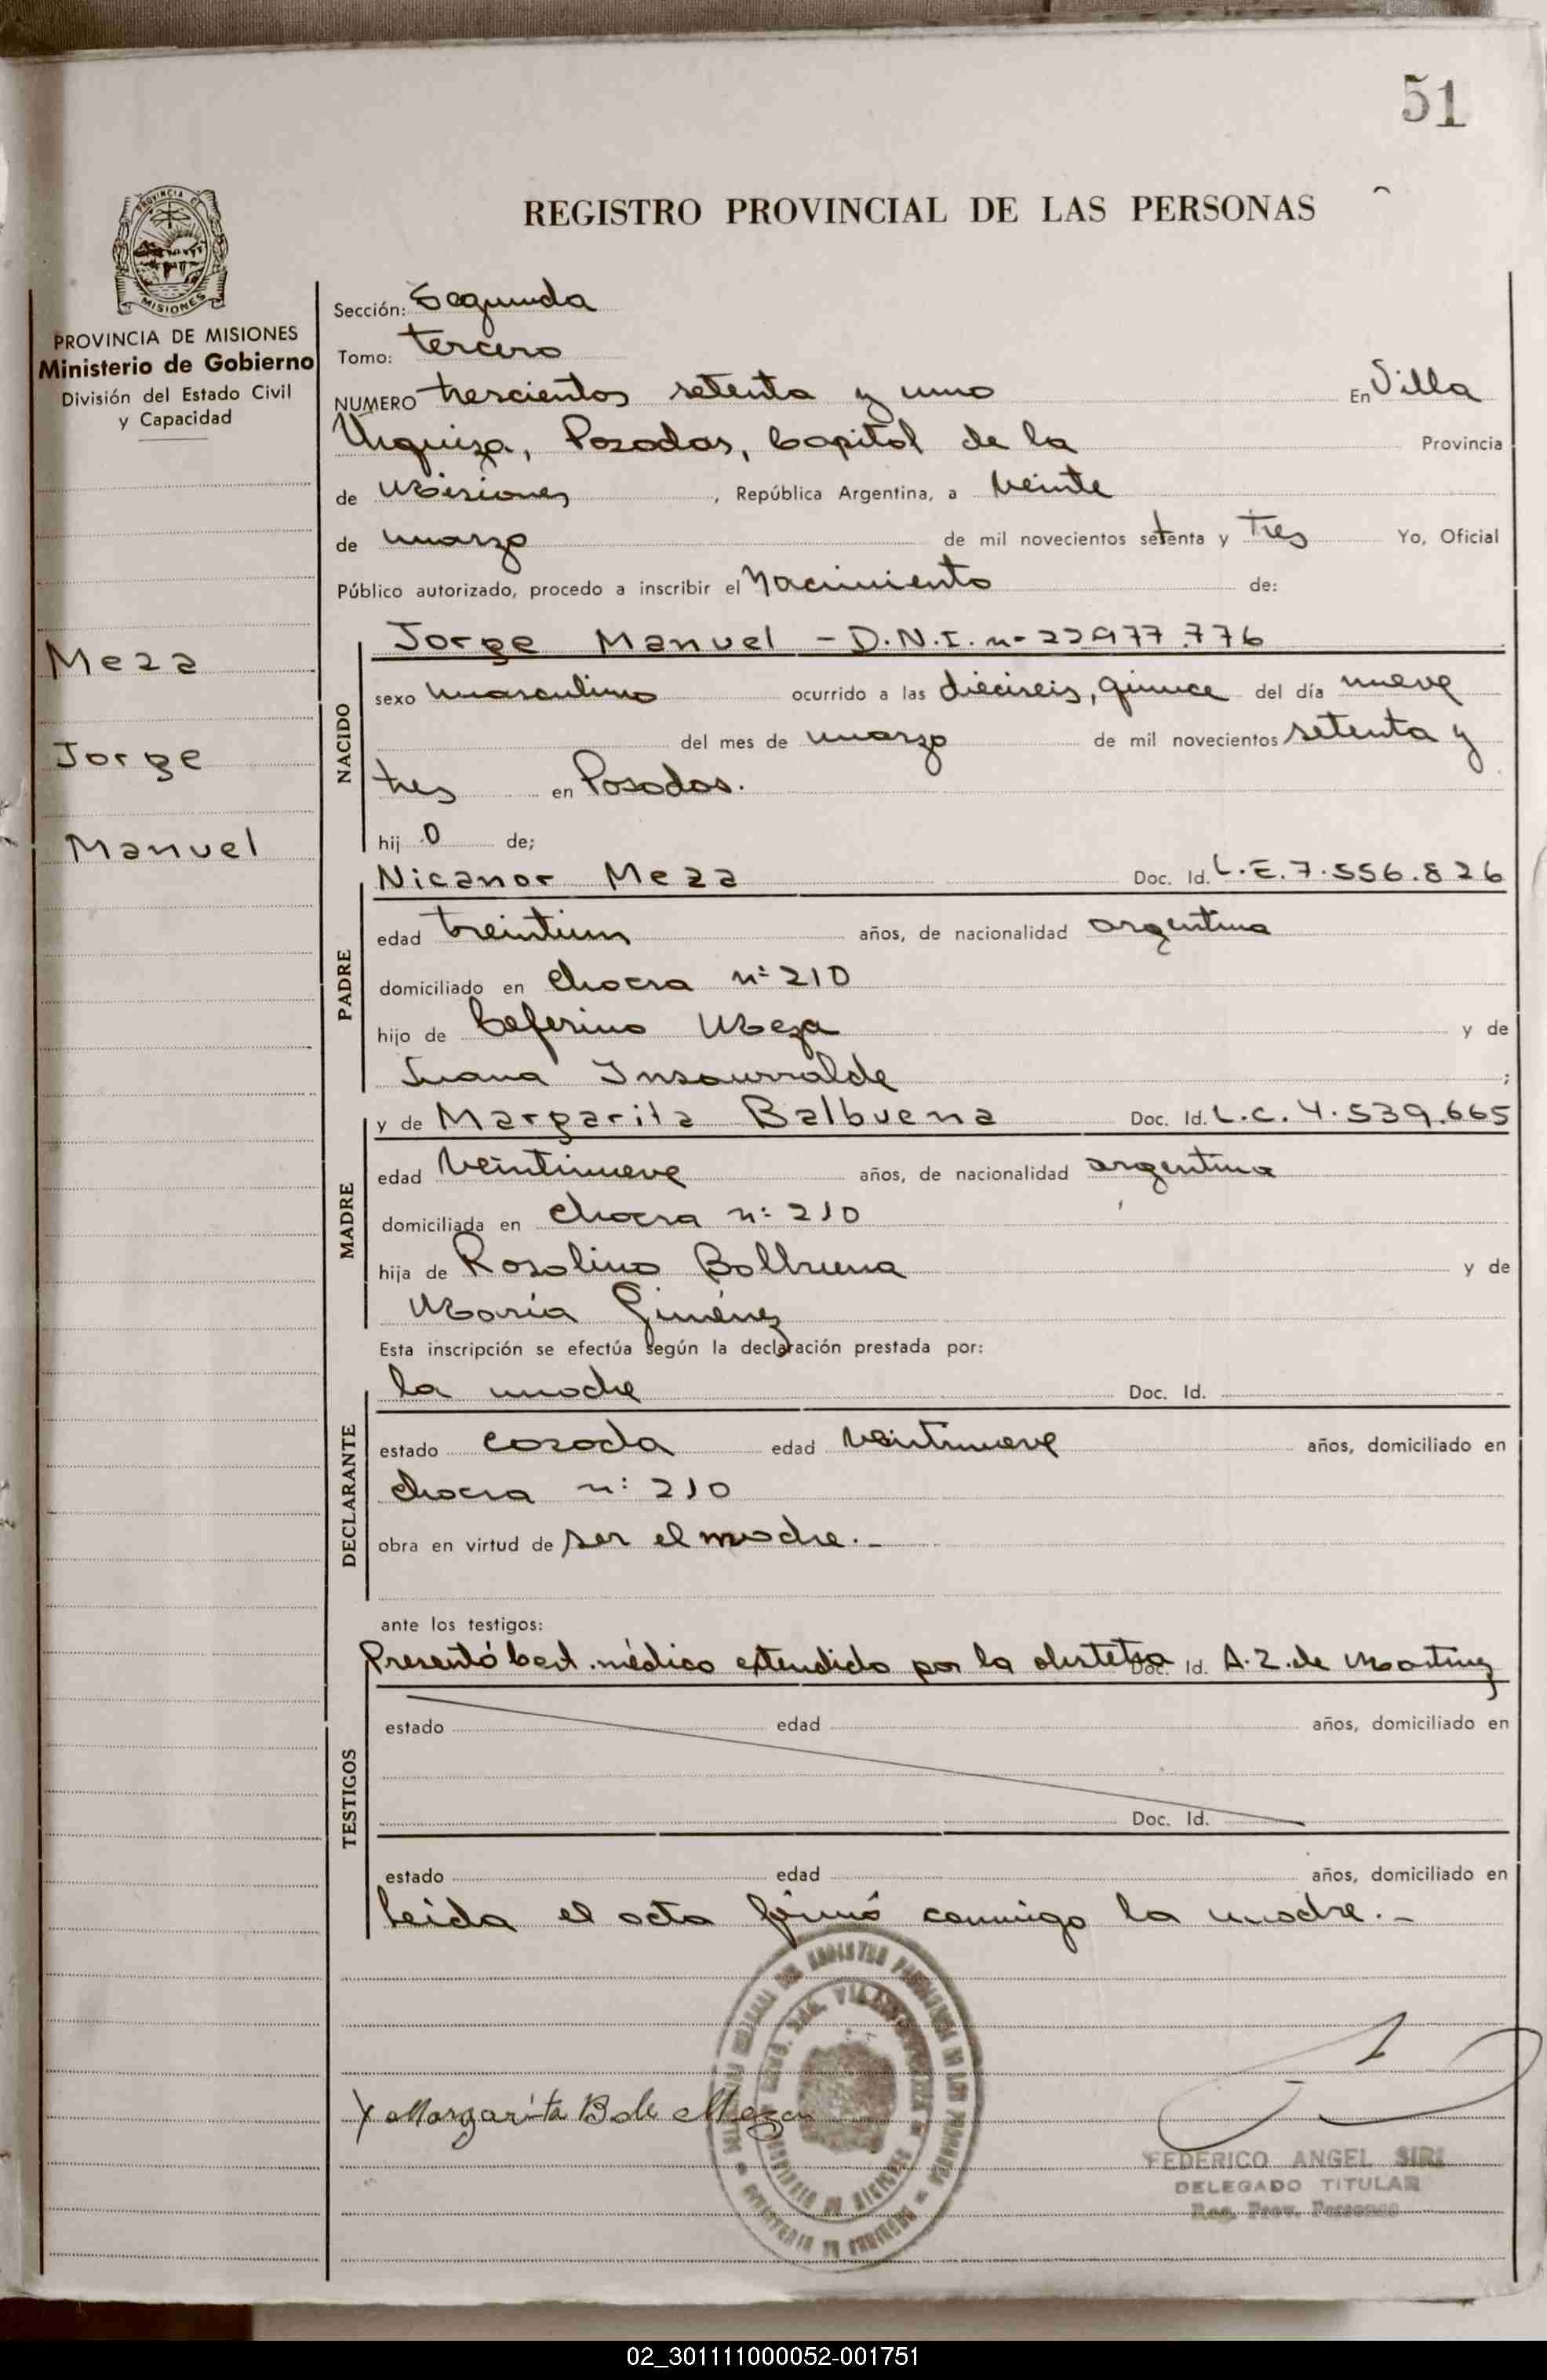 51
REGISTRO PROVINCIAL DE LAS PERSONAS
PROVINCIA DE
MISIONES
PROVINCIA DE MISIONES
Ministerio de Gobierno
División del Estado Civil
y Capacidad
Meza
Jorge
Manuel
Sección: Segunda
Tomo: tercero
NUMERO trescientos setenta y uno En Villa
Urquiza, Posadas, Capital de la Provincia
de Misiones, República Argentina, a veinte
de marzo de mil novecientos setenta y tres Yo, Oficial
Público autorizado, procedo a inscribir el Nacimiento de:
NACIDO
Jorge Manuel - D.N.I. nº 22977.776
sexo masculino ocurrido a las dieciseis, quince del día nueve
del mes de marzo de mil novecientos setenta y
tres en Posadas.
hij o de;
PADRE
Nicanor Meza Doc. Id. L.E. 7.556.826
edad treintiun años, de nacionalidad argentina
domiciliado en chacra nº 210
hijo de Ceferino Meza y de
Juana Insaurralde ;
MADRE
y de Margarita Balbuena Doc. Id. L.C. 4.539.665
edad veintinueve años, de nacionalidad argentina
domiciliada en chacra nº 210
hija de Rosalino Balbuena y de
María Giménez
Esta inscripción se efectúa según la declaración prestada por:
DECLARANTE
la madre Doc. Id.
estado casada edad veintinueve años, domiciliado en
chacra nº 210
obra en virtud de ser el madre.-
ante los testigos:
TESTIGOS
Presentó Cert. médico extendido por la obstetra Doc. Id. A. Z. de Martinez
estado edad años, domiciliado en
Doc. Id.
estado edad años, domiciliado en
Leida el acta firmó conmigo la madre.-
X Margarita B de Meza
FEDERICO ANGEL SIRI
DELEGADO TITULAR
Reg. Prov. Personas
02_301111000052-001751